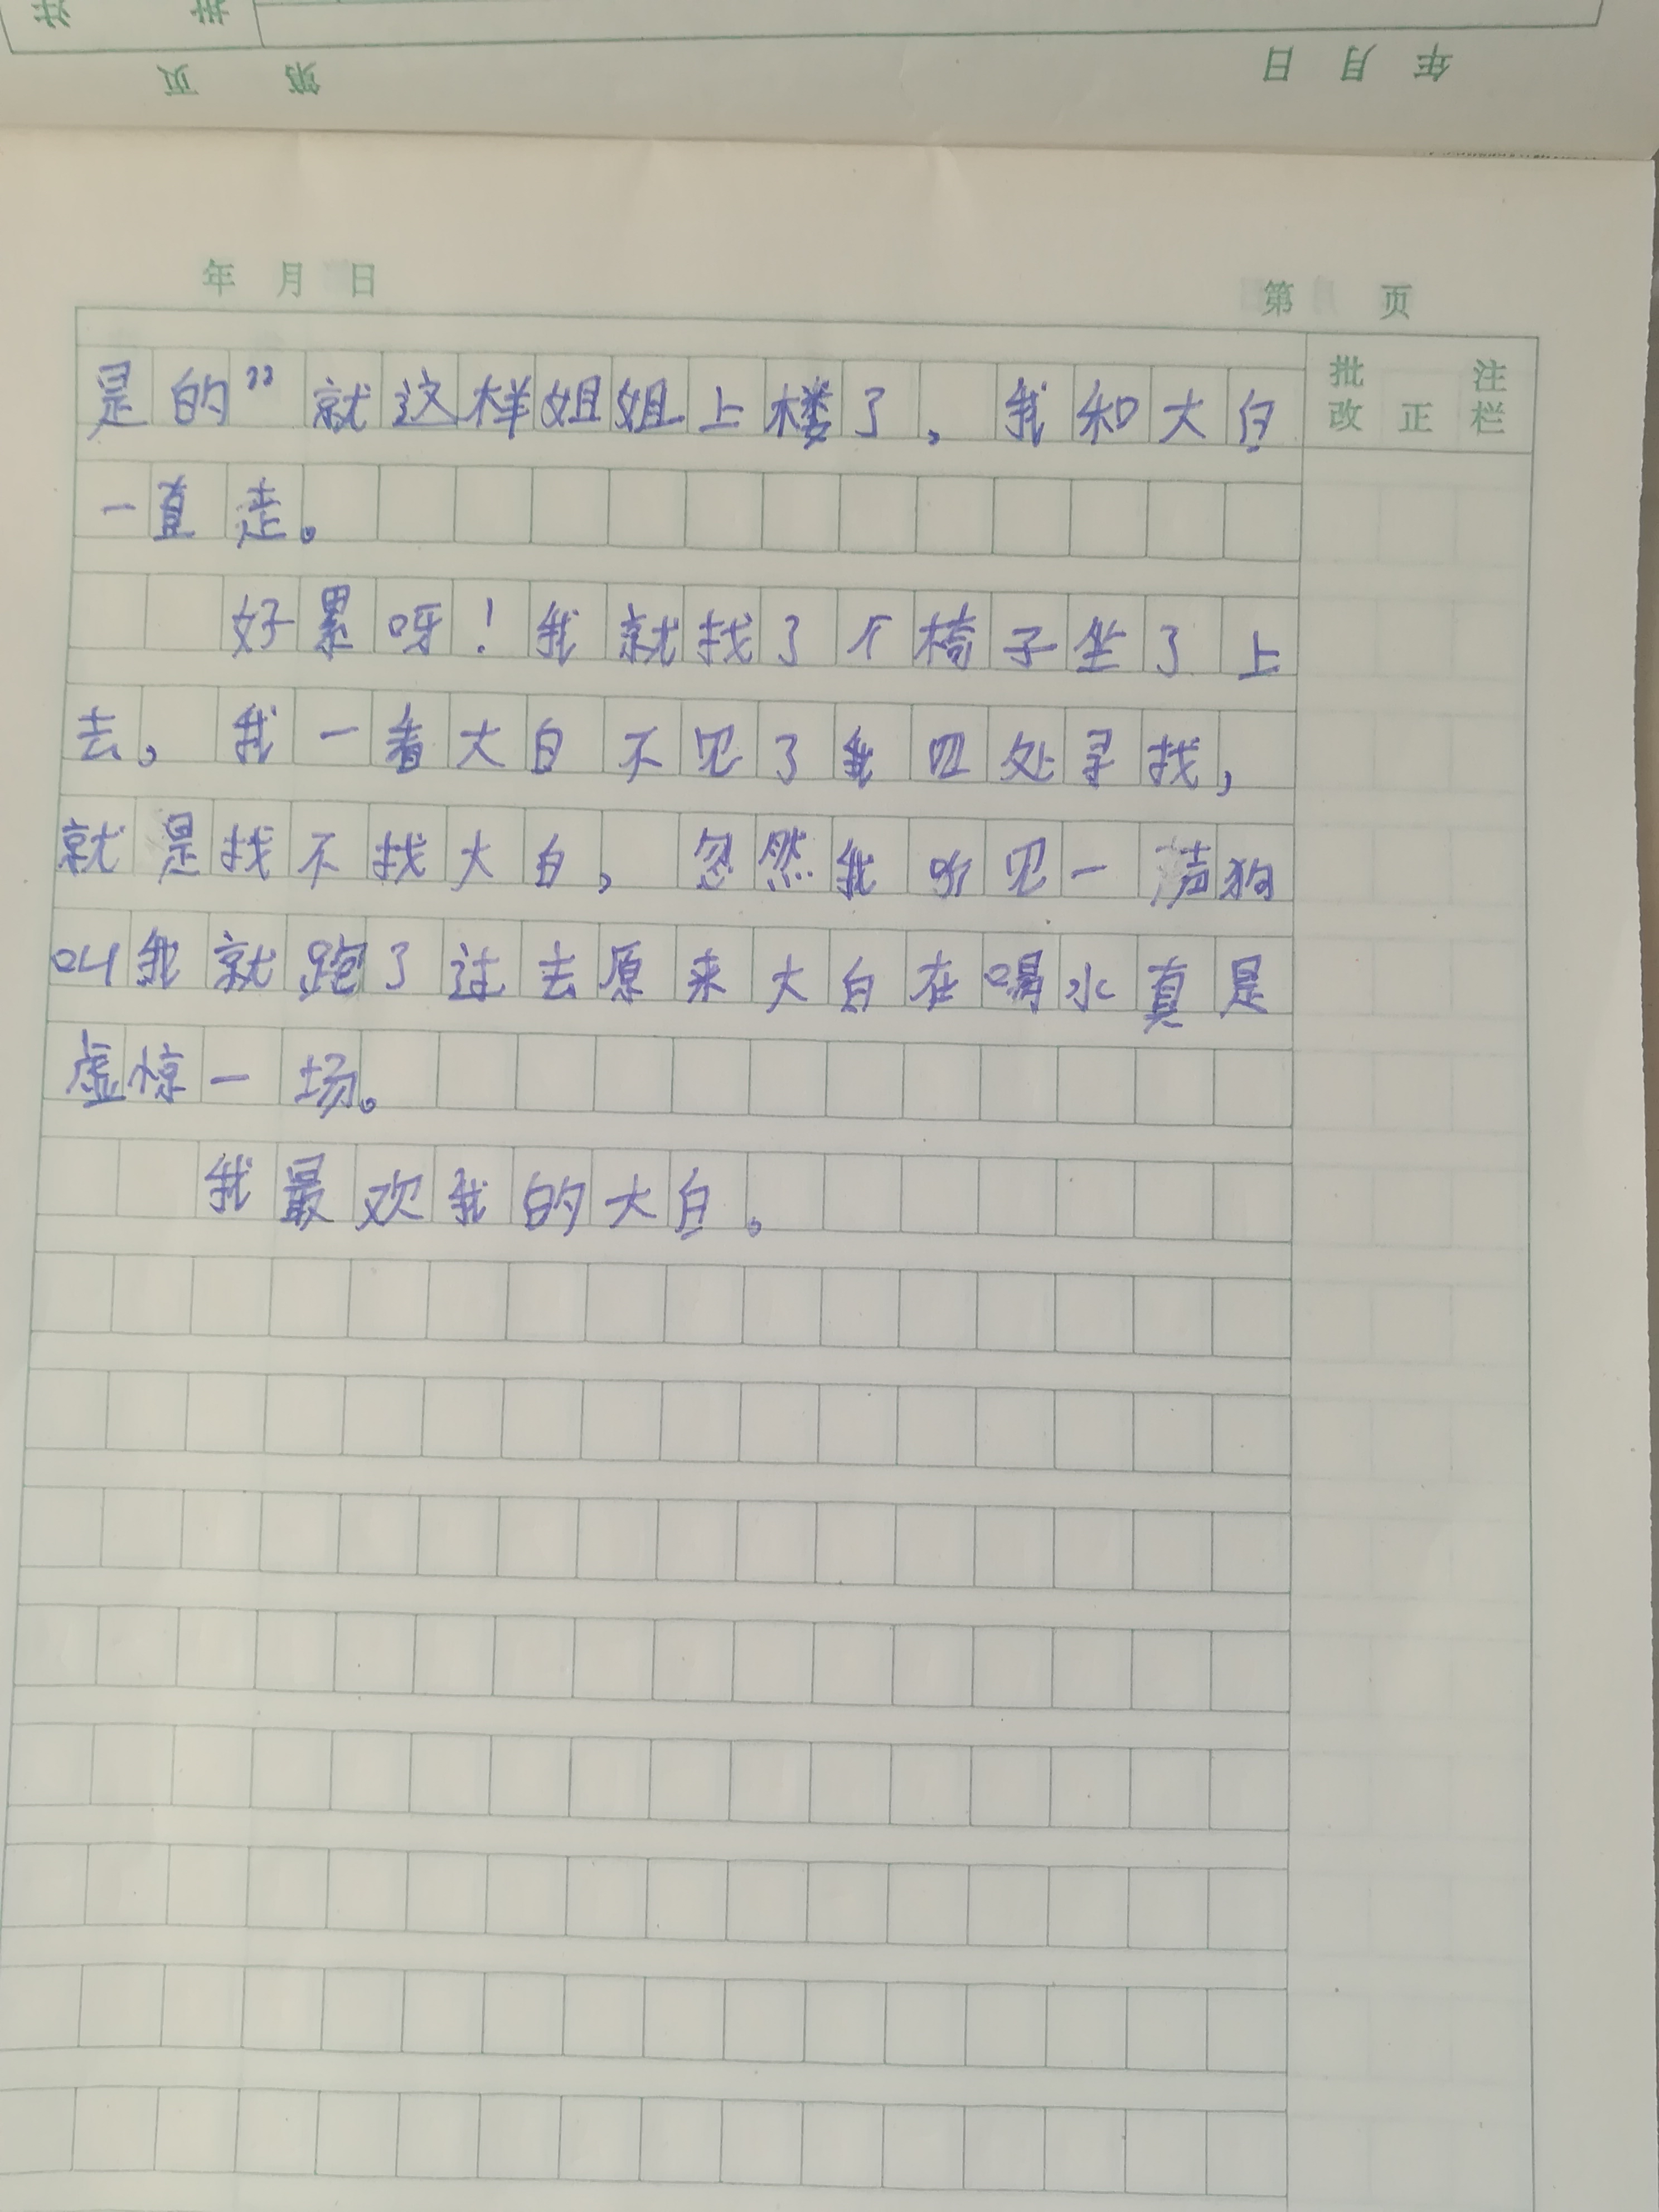 注 批
页 第 日 月 年
年 月 日 第 页
批 注
改 正 栏
是的”就这样姐姐上楼了，我和大白
一直走。
好累呀！我就找了个椅子坐了上
去，我一看大白不见了我四处寻找，
就是找不找大白，忽然我听见一声狗
叫我就跑了过去原来大白在喝水真是
虚惊一场。
我最欢我的大白。